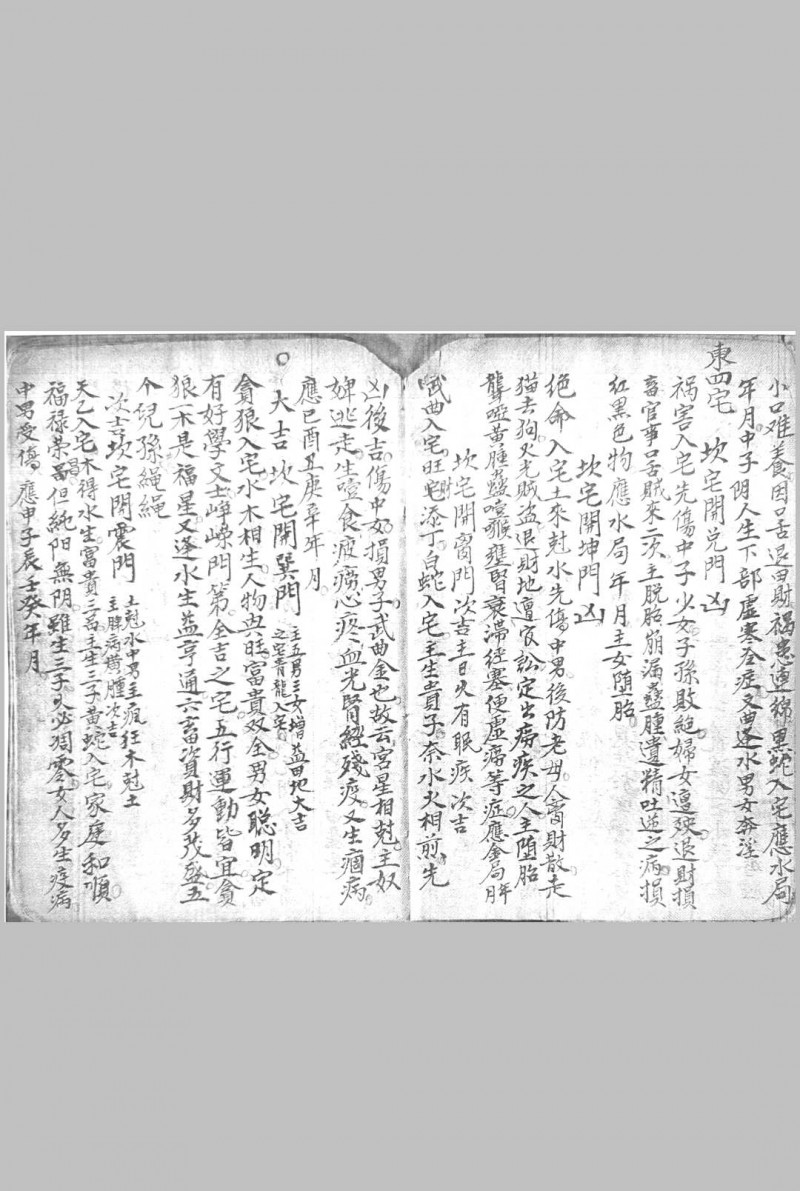 小口难養因口舌退田財禍患連綿黒蛇入宅應水局
年月中子阴人生下部虚寒冷症文曲逐水男女奔淫
東四宅　坎宅開兑門凶
禍害入宅先傷中子少女子孫敗絶婦女遭殃退財損
畜官事口舌賊來二次主脱胎崩漏蠱腫遺精吐逆之病損
紅黒色物應水局年月主女堕胎
坎宅開坤門凶
絶命入宅土來尅水先傷中男後防老母人審財散走
猫去狗火光賊盗退財地遭官訟定出癆疾之人主堕胎
聾啞黄腫蠱噎猴壅腎衰滞経塞便虚痛等症應金局年月
坎宅開离門次吉主目火有眼疾次吉
武曲入宅旺宅添丁白蛇入宅主生貴子奈水火相煎先
凶後吉傷中女損男子武曲金也故云宮星相尅主奴
婢逃走生噎食瘦癆心疼血光腎經殘疫又生痼病
應巳酉丑庚辛年月
○大吉坎宅開巽門　主五男三女增益田地大吉之宅青龍入宅
貪狼入宅水木相生人物興旺富貴双全男女聪明定
有好學文士崢嶸門第全吉之宅五行運動皆宜貪
狼一木是福星又逢水生益亨通六畜資財多茂盛五
个兒孫繩繩
次吉坎宅開震門　土尅水中男主瘋狂木尅土主脾病黄腫次吉
天乙入宅木得水生富貴三昌主生三子黄蛇入宅家庭和順
福禄荣昌但純阳無阴雖生三子久必凋零女人多生疫病
中男受傷應申子辰壬癸年月